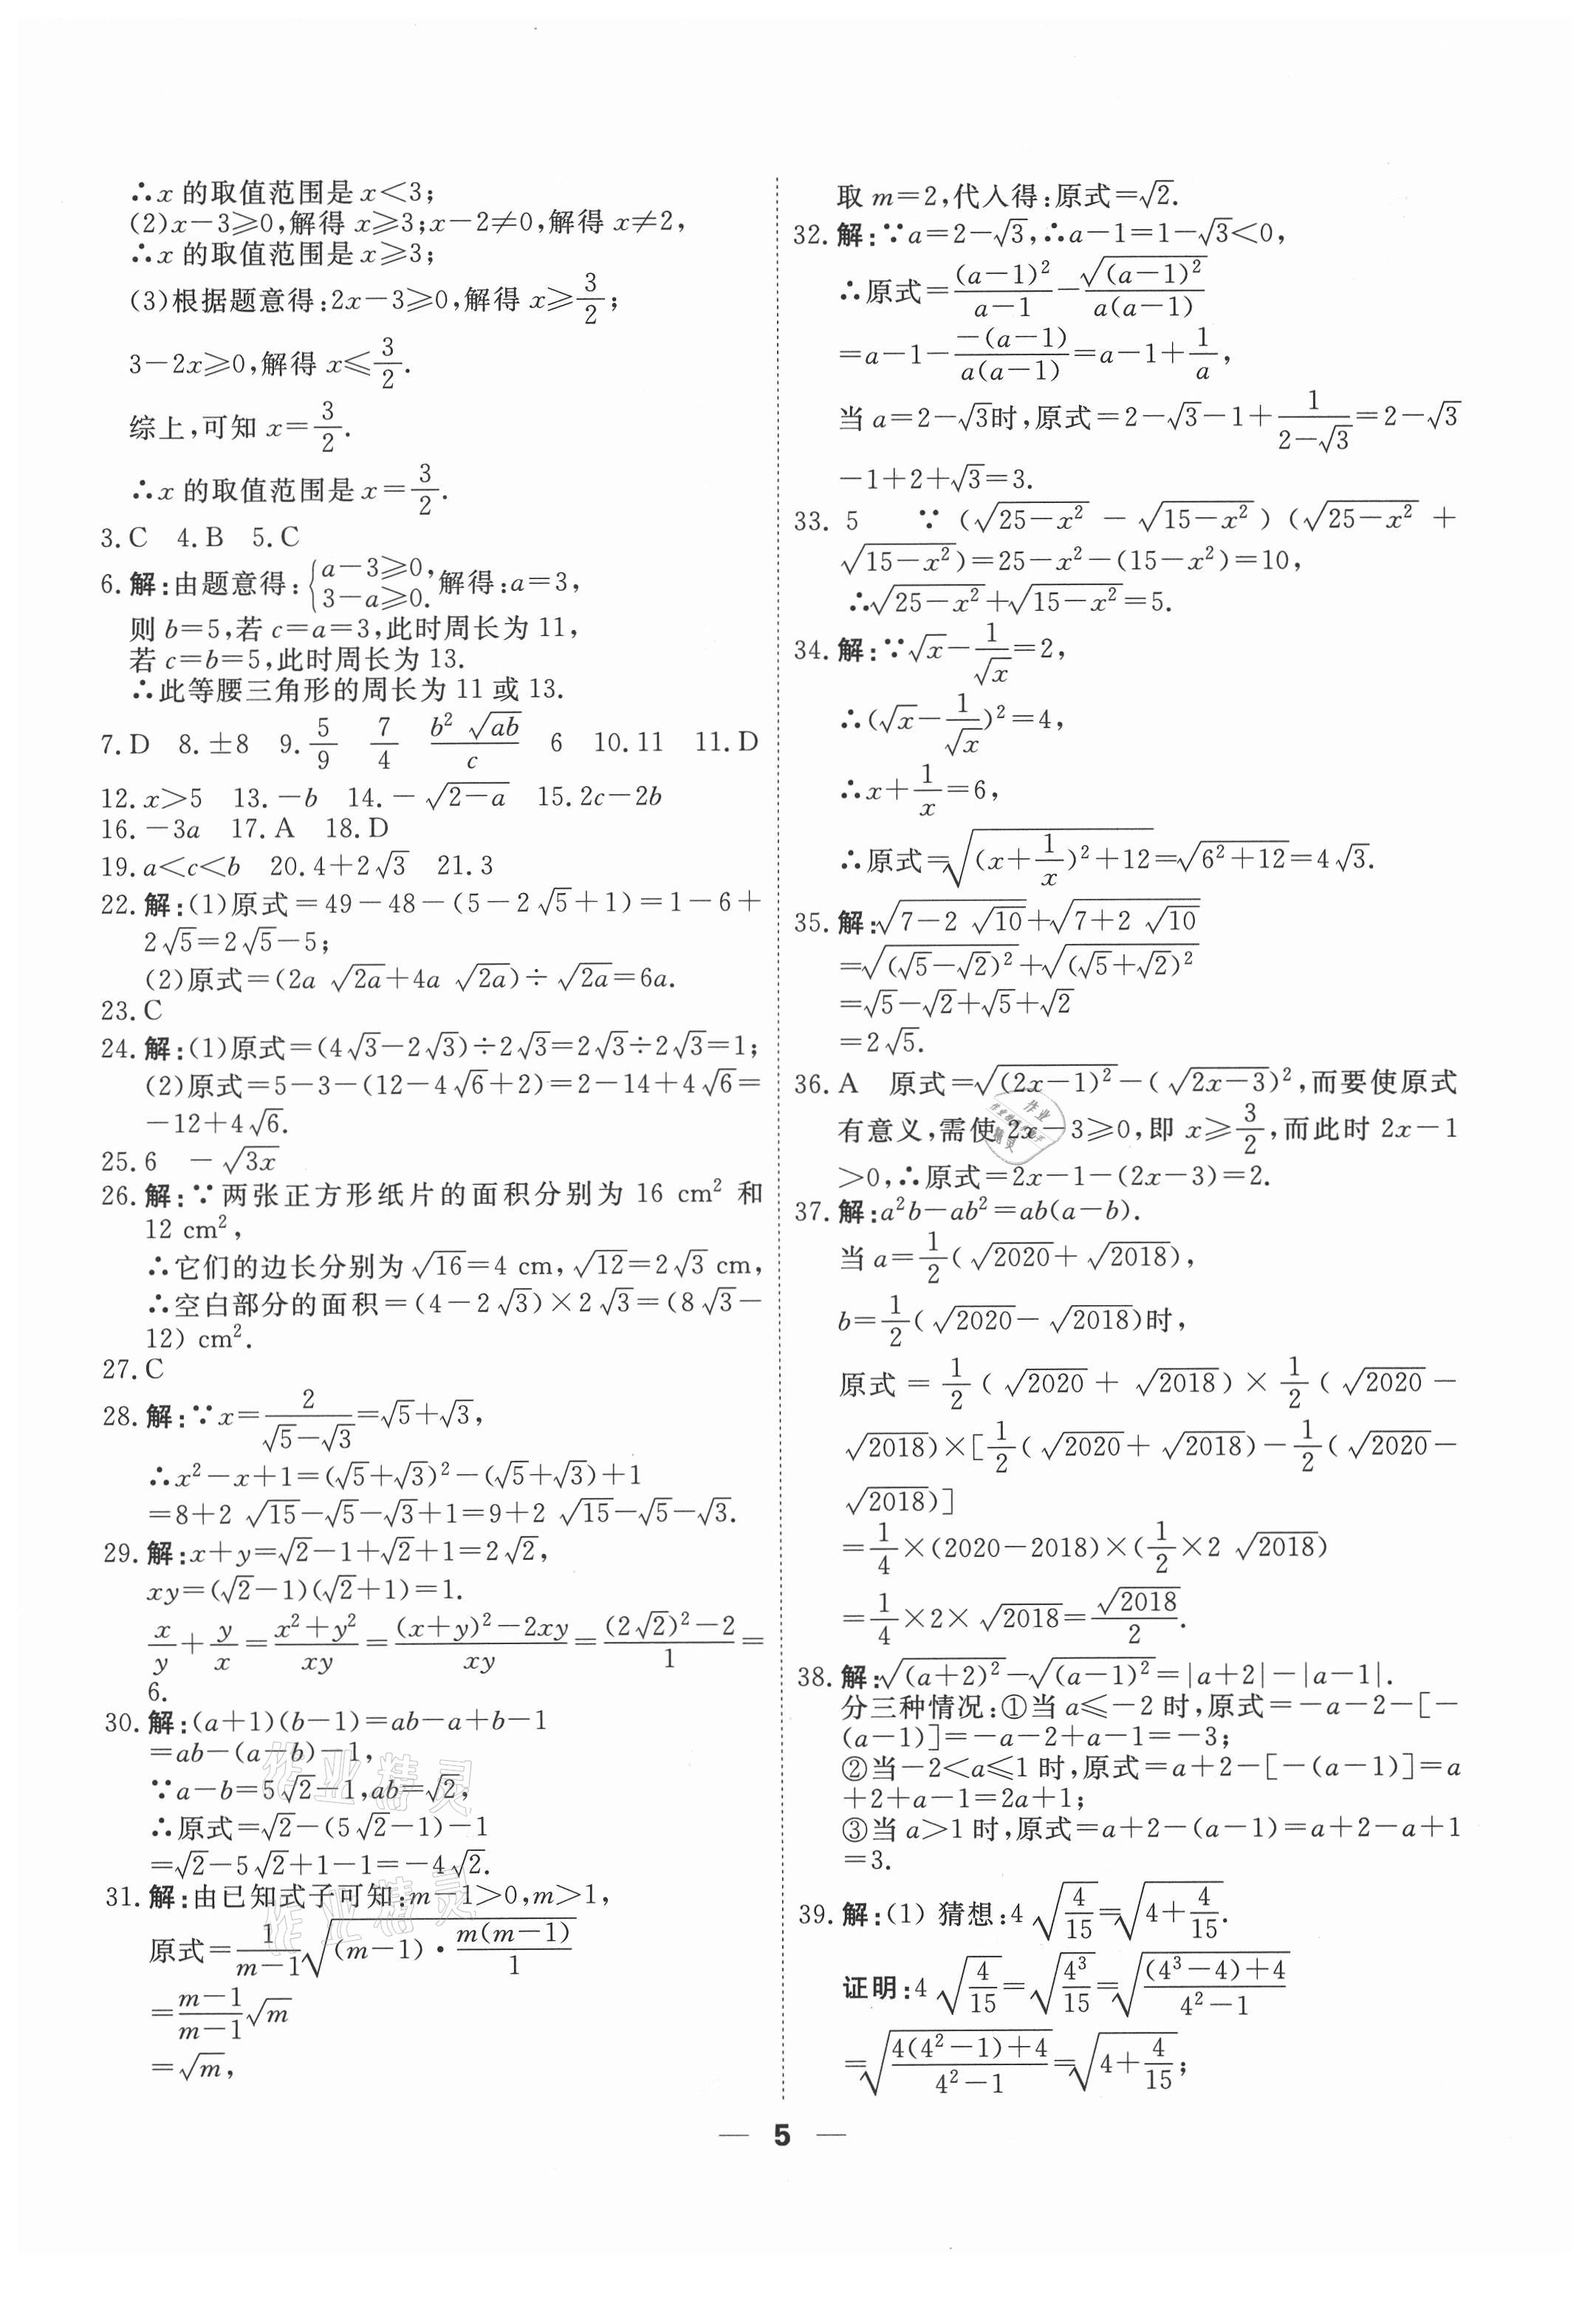 ∴x 的取值范围是 x<3;
(2)x-3≥0,解得 x≥3;x-2≠0,解得 x≠2,
∴x 的取值范围是 x≥3;
(3)根据题意得:2x-3≥0,解得 x≥3/2;
3-2x≥0,解得 x≤3/2.
综上,可知 x=3/2.
∴x 的取值范围是 x=3/2.
3.C 4.B 5.C
6.解:由题意得:{a-3≥0, 3-a≥0. 解得:a=3,
则 b=5,若 c=a=3,此时周长为 11,
若 c=b=5,此时周长为 13.
∴此等腰三角形的周长为 11 或 13.
7.D 8.±8 9.5/9 7/4 b²√(ab)/c 6 10.11 11.D
12.x>5 13.-b 14.-√(2-a) 15.2c-2b
16.-3a 17.A 18.D
19.a<c<b 20.4+2√3 21.3
22.解:(1)原式=49-48-(5-2√5+1)=1-6+
2√5=2√5-5;
(2)原式=(2a√(2a)+4a√(2a))÷√(2a)=6a.
23.C
24.解:(1)原式=(4√3-2√3)÷2√3=2√3÷2√3=1;
(2)原式=5-3-(12-4√6+2)=2-14+4√6=
-12+4√6.
25.6 -√(3x)
26.解:∵两张正方形纸片的面积分别为 16 cm² 和
12 cm²,
∴它们的边长分别为√16=4 cm,√12=2√3 cm,
∴空白部分的面积=(4-2√3)×2√3=(8√3-
12) cm².
27.C
28.解:∵x=2/(√5-√3)=√5+√3,
∴x²-x+1=(√5+√3)²-(√5+√3)+1
=8+2√15-√5-√3+1=9+2√15-√5-√3.
29.解:x+y=√2-1+√2+1=2√2,
xy=(√2-1)(√2+1)=1.
x/y+y/x=(x²+y²)/xy=((x+y)²-2xy)/xy=((2√2)²-2)/1=
6.
30.解:(a+1)(b-1)=ab-a+b-1
=ab-(a-b)-1,
∵a-b=5√2-1,ab=√2,
∴原式=√2-(5√2-1)-1
=√2-5√2+1-1=-4√2.
31.解:由已知式子可知:m-1>0,m>1,
原式=1/(m-1)√((m-1)·m(m-1)/1)
=(m-1)/(m-1)√m
=√m,
取 m=2,代入得:原式=√2.
32.解:∵a=2-√3,∴a-1=1-√3<0,
∴原式=(a-1)²/(a-1)-√((a-1)²)/(a(a-1))
=a-1-(-(a-1))/(a(a-1))=a-1+1/a,
当 a=2-√3时,原式=2-√3-1+1/(2-√3)=2-√3
-1+2+√3=3.
33. 5 ∵(√(25-x²)-√(15-x²))(√(25-x²)+
√(15-x²))=25-x²-(15-x²)=10,
∴√(25-x²)+√(15-x²)=5.
34.解:∵√x-1/√x=2,
∴(√x-1/√x)²=4,
∴x+1/x=6,
∴原式=√((x+1/x)²+12)=√(6²+12)=4√3.
35.解:√(7-2√10)+√(7+2√10)
=√((√5-√2)²)+√((√5+√2)²)
=√5-√2+√5+√2
=2√5.
36.A 原式=√((2x-1)²)-(√(2x-3))²,而要使原式
有意义,需使 2x-3≥0,即 x≥3/2,而此时 2x-1
>0,∴原式=2x-1-(2x-3)=2.
37.解:a²b-ab²=ab(a-b).
当 a=1/2(√2020+√2018),
b=1/2(√2020-√2018)时,
原式=1/2(√2020+√2018)×1/2(√2020-
√2018)×[1/2(√2020+√2018)-1/2(√2020-
√2018)]
=1/4×(2020-2018)×(1/2×2√2018)
=1/4×2×√2018=√2018/2.
38.解:√((a+2)²)-√((a-1)²)=|a+2|-|a-1|.
分三种情况:①当 a≤-2 时,原式=-a-2-[-
(a-1)]=-a-2+a-1=-3;
②当-2<a≤1 时,原式=a+2-[-(a-1)]=a
+2+a-1=2a+1;
③当 a>1 时,原式=a+2-(a-1)=a+2-a+1
=3.
39.解:(1) 猜想:4√(4/15)=√(4+4/15).
证明:4√(4/15)=√(4³/15)=√(((4³-4)+4)/(4²-1))
=√((4(4²-1)+4)/(4²-1))=√(4+4/15);
— 5 —
作业精灵
作业精灵